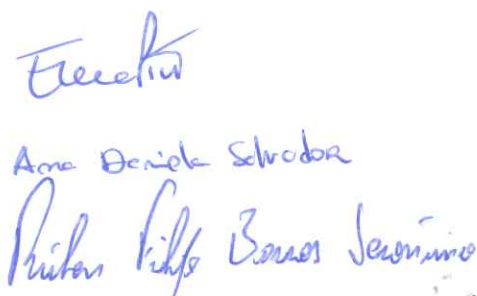 Ana Daniela Salvador
Rúben Filipe Barros Jerónimo